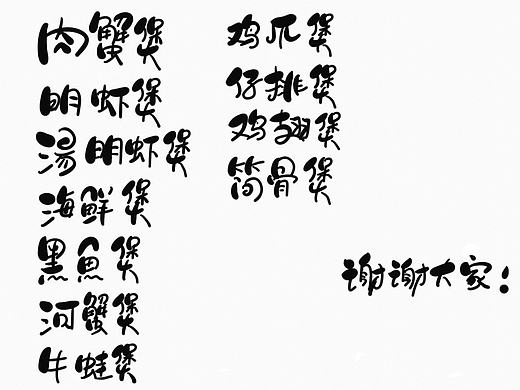 肉蟹煲
明虾煲
湯明虾煲
海鲜煲
黑魚煲
河蟹煲
牛蛙煲
鸡爪煲
仔排煲
鸡翅煲
筒骨煲
谢谢大家！